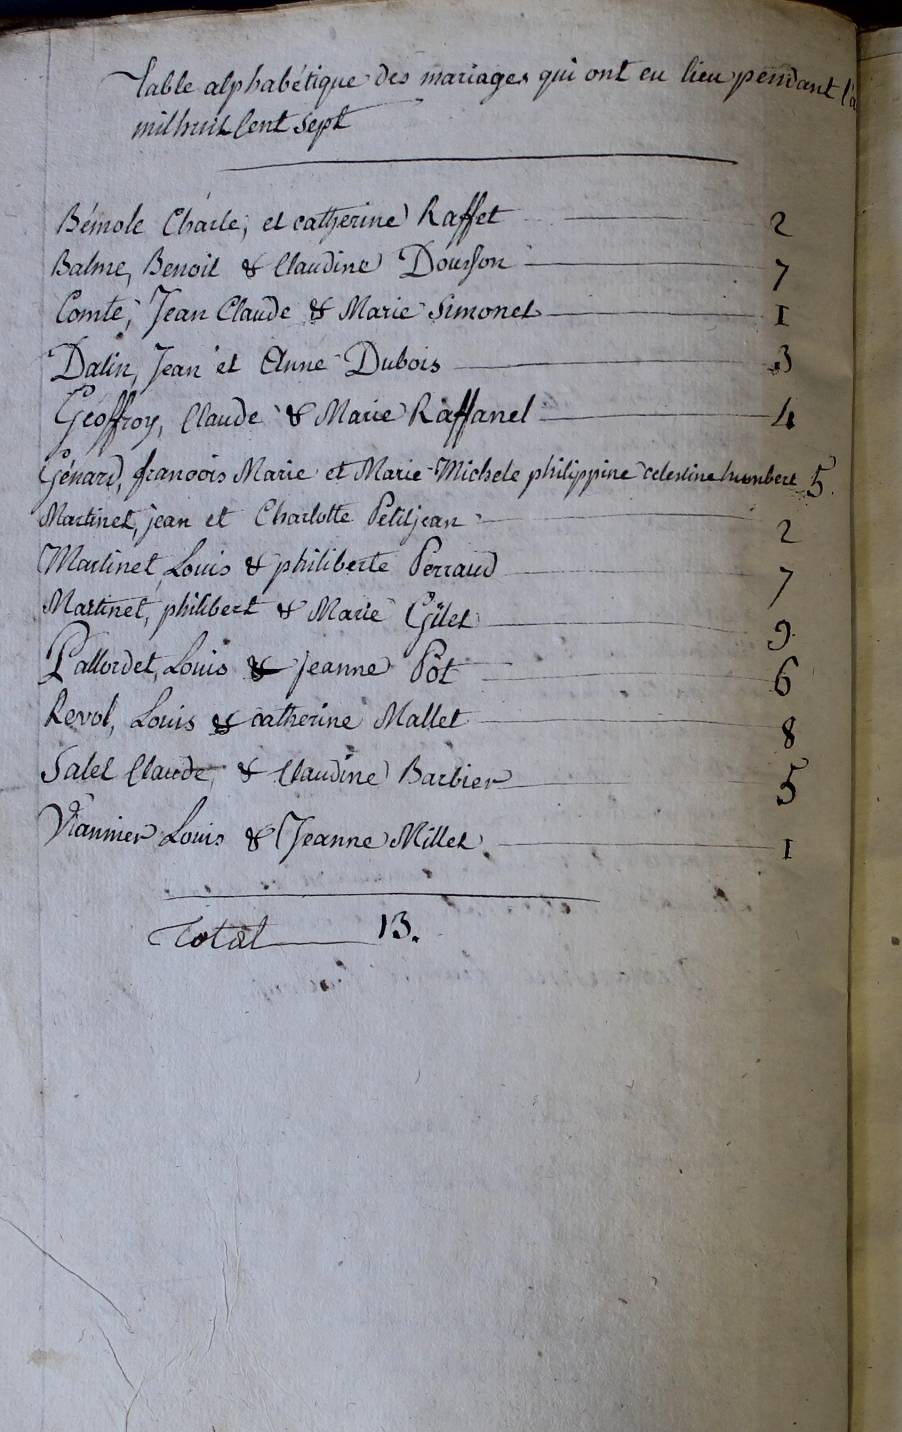 Table alphabétique des mariages qui ont eu lieu pendant l'a
mil huit Cent Sept
Bémole Charle, et catherine Raffet 2
Balme, Benoit & Claudine Dousson 7
Comte, Jean Claude & Marie Simonet 1
Dalin, Jean et Anne Dubois 3
Géoffroy, Claude & Marie Raffanel 4
Génard, francois Marie et Marie Michele philippine celestine humbert 5.
Martinet, jean et Charlotte Petitjean 2
Martinet, Louis & philiberte Perraud 7
Martinet, philibert & Marie Gilet 9
Pallordet, Louis & Jeanne Pôt 6
Revol, Louis & catherine Mallet 8
Salel Claude, & Claudine Barbier 5
Viannier Louis & Jeanne Millet 1
Total 13.